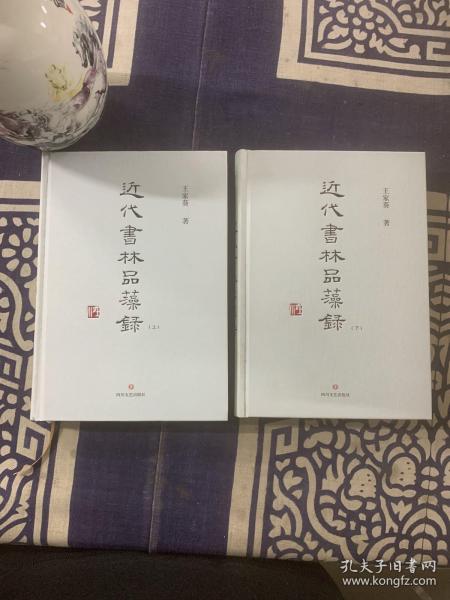 近代書林品藻録
（上）
王家葵 著
四川文艺出版社
近代書林品藻録
（下）
王家葵 著
四川文艺出版社
孔夫子旧书网
www.kongfz.com